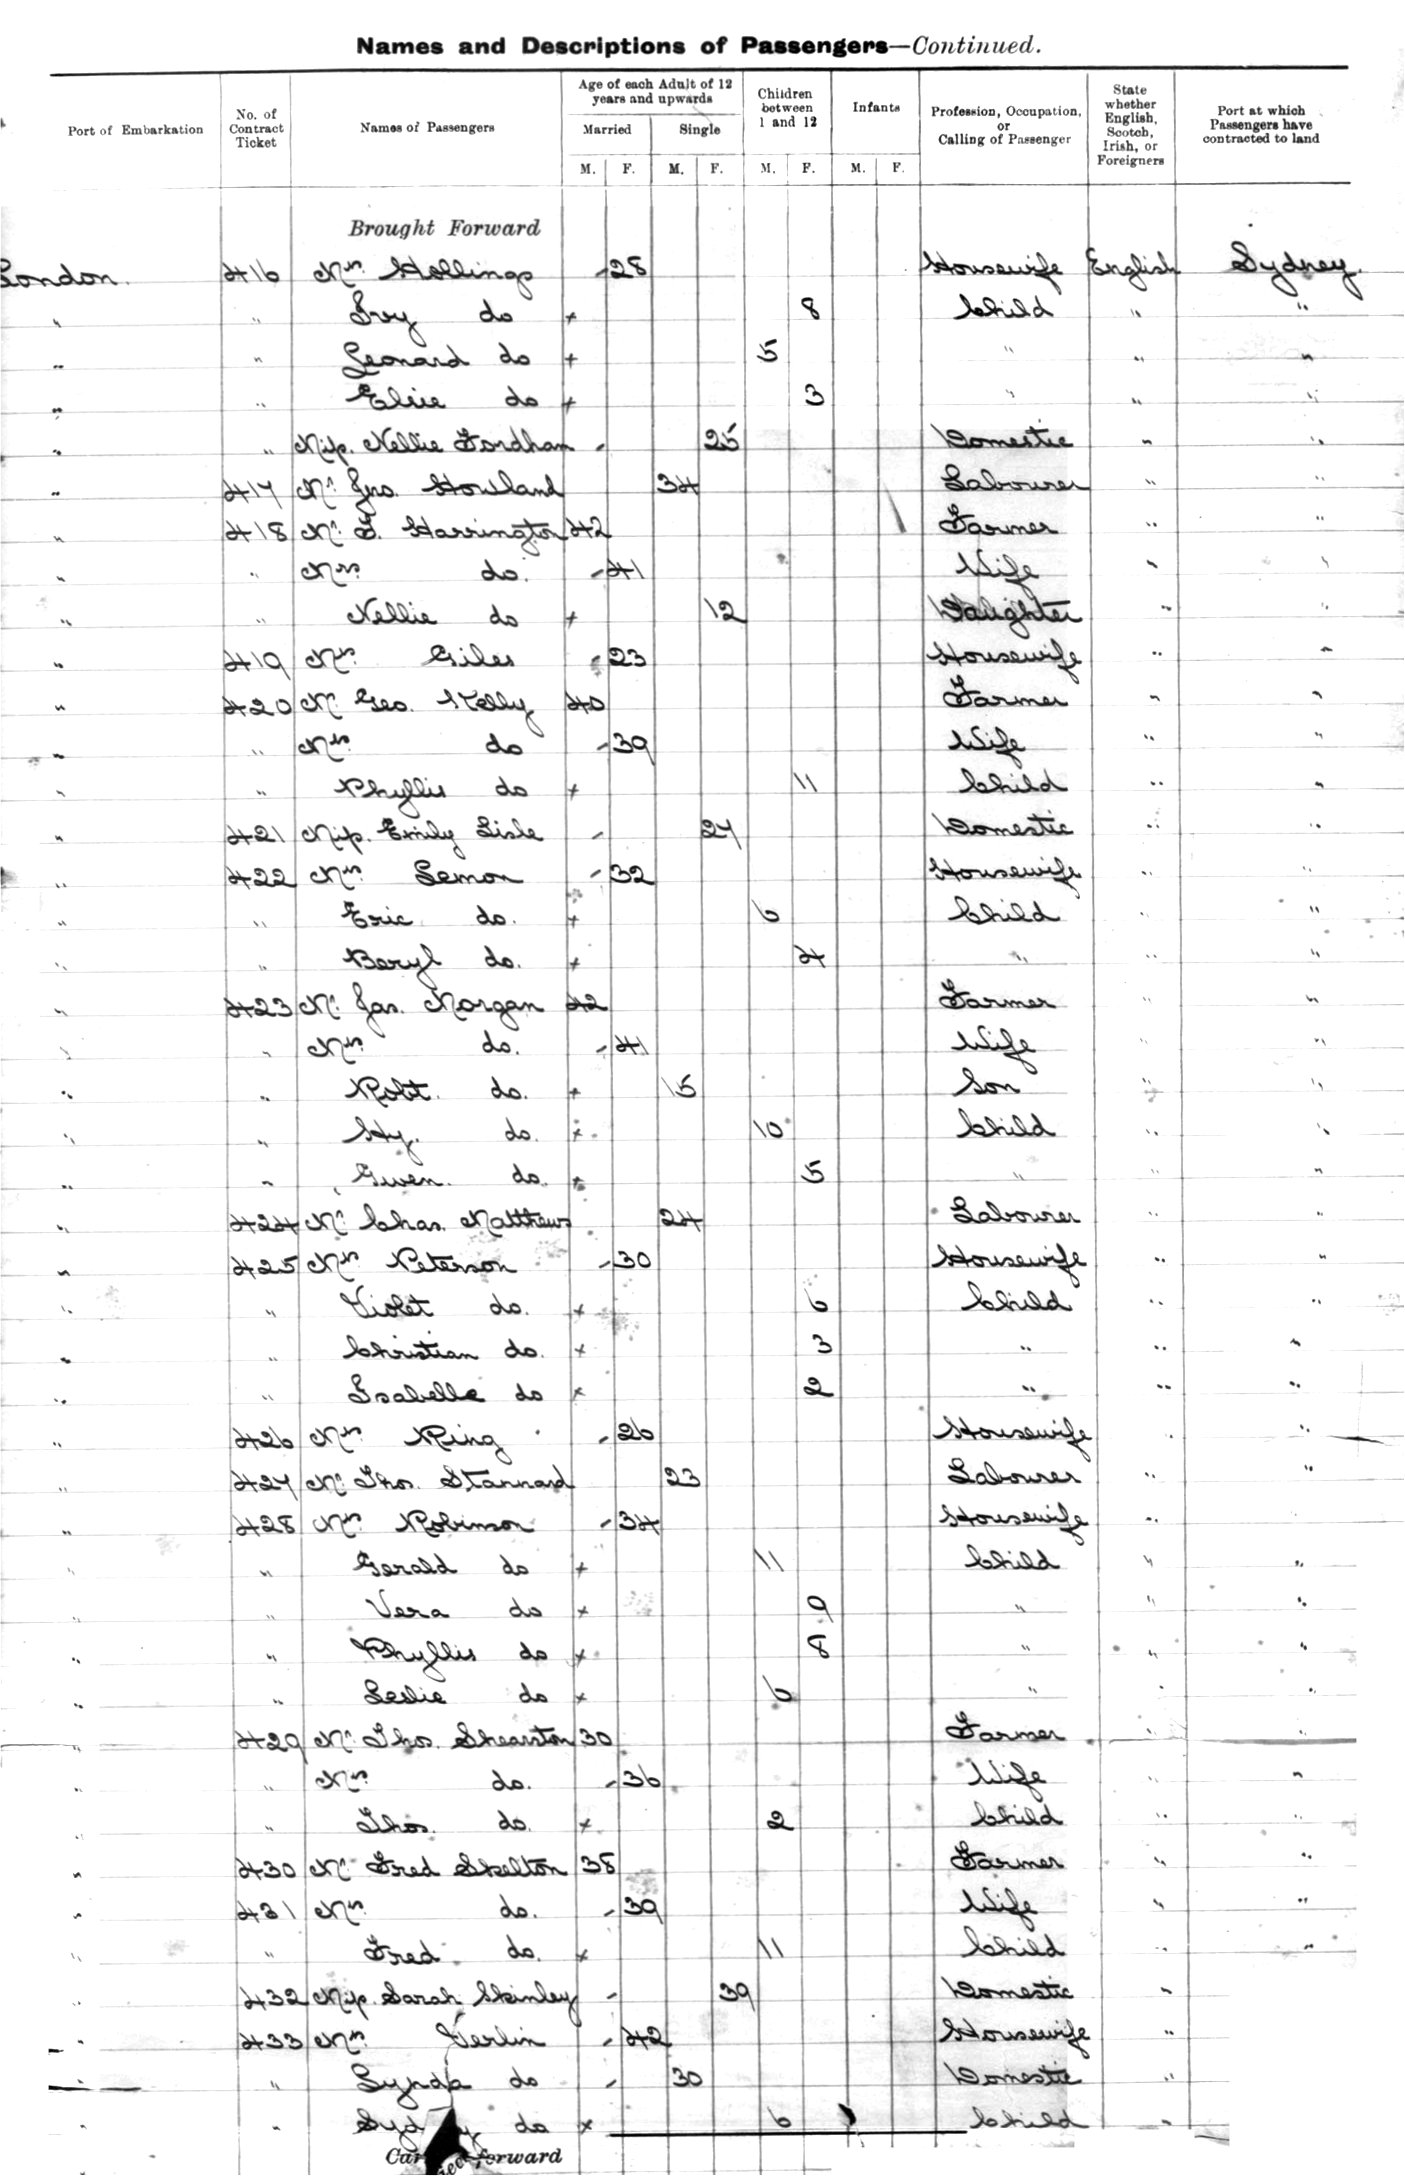 Names and Descriptions of Passengers—Continued.
Port of Embarkation | No. of Contract Ticket | Names of Passengers | Age of each Adult of 12 years and upwards | Children between 1 and 12 | Infants | Profession, Occupation, or Calling of Passenger | State whether English, Scotch, Irish, or Foreigners | Port at which Passengers have contracted to land
Married | Single
M. | F. | M. | F. | M. | F. | M. | F.
Brought Forward
London. 416 Mrs. Hollings - 28 Housewife English Sydney.
" " Ivy do + 8 Child " "
" " Leonard do + 5 " " "
" " Elsie do + 3 " " "
" " Miss. Nellie Fordham - 25 Domestic " "
" 417 Mr. Jno. Howland 34 Labourer " "
" 418 Mr. G. Harrington 42 Farmer " "
" " Mrs. do. - 41 Wife " "
" " Nellie do + 12 Daughter " "
" 419 Mrs. Giles - 23 Housewife " "
" 420 Mr. Geo. Kelly 40 Farmer " "
" " Mrs. do - 39 Wife " "
" " Phyllis do + 11 Child " "
" 421 Miss. Emily Lisle - 27 Domestic " "
" 422 Mrs. Lemon - 32 Housewife " "
" " Eric do. + 6 Child " "
" " Beryl do. + 4 " " "
" 423 Mr. Jas. Morgan 42 Farmer " "
" " Mrs. do. - 41 Wife " "
" " Robt. do. + 15 Son " "
" " Hy. do. + 10 Child " "
" " Gwen. do. + 5 " " "
" 424 Mr. Chas. Matthews 24 Labourer " "
" 425 Mrs. Peterson - 30 Housewife " "
" " Violet do. + 6 Child " "
" " Christian do. + 3 " " "
" " Isabelle do + 2 " " "
" 426 Mrs. Ring - 26 Housewife " "
" 427 Mr. Thos. Stannard 23 Labourer " "
" 428 Mrs. Robinson - 34 Housewife "
" " Gerald do + 11 Child " "
" " Vera do + 9 " " "
" " Phyllis do + 8 " " "
" " Leslie do + 6 " " "
" 429 Mr. Thos. Shearston 30 Farmer " "
" " Mrs. do. - 36 Wife " "
" " Thos. do. + 2 Child " "
" 430 Mr. Fred Skelton 38 Farmer " "
" 431 Mrs. do. - 39 Wife " "
" " Fred do. + 11 Child " "
" 432 Miss. Sarah Skinley - 39 Domestic "
" 433 Mrs. Verlin - 42 Housewife "
" " Lynda do - 30 Domestic "
" " do + 6 Child "
forward